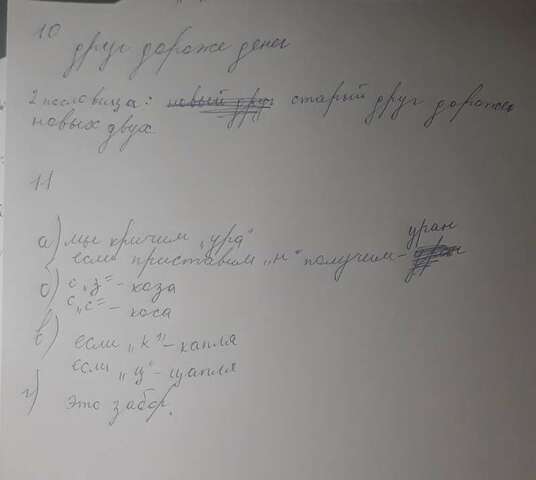 10
друг дороже денег
2 пословица: новый друг старый друг дороже
новых двух.
11
а) мы кричим „ура"
если приставим „н" получим - уран
б) с „з" - коза
с „с" - коса
в) если „к" - капля
если „ц" - цапля
г) это забор.